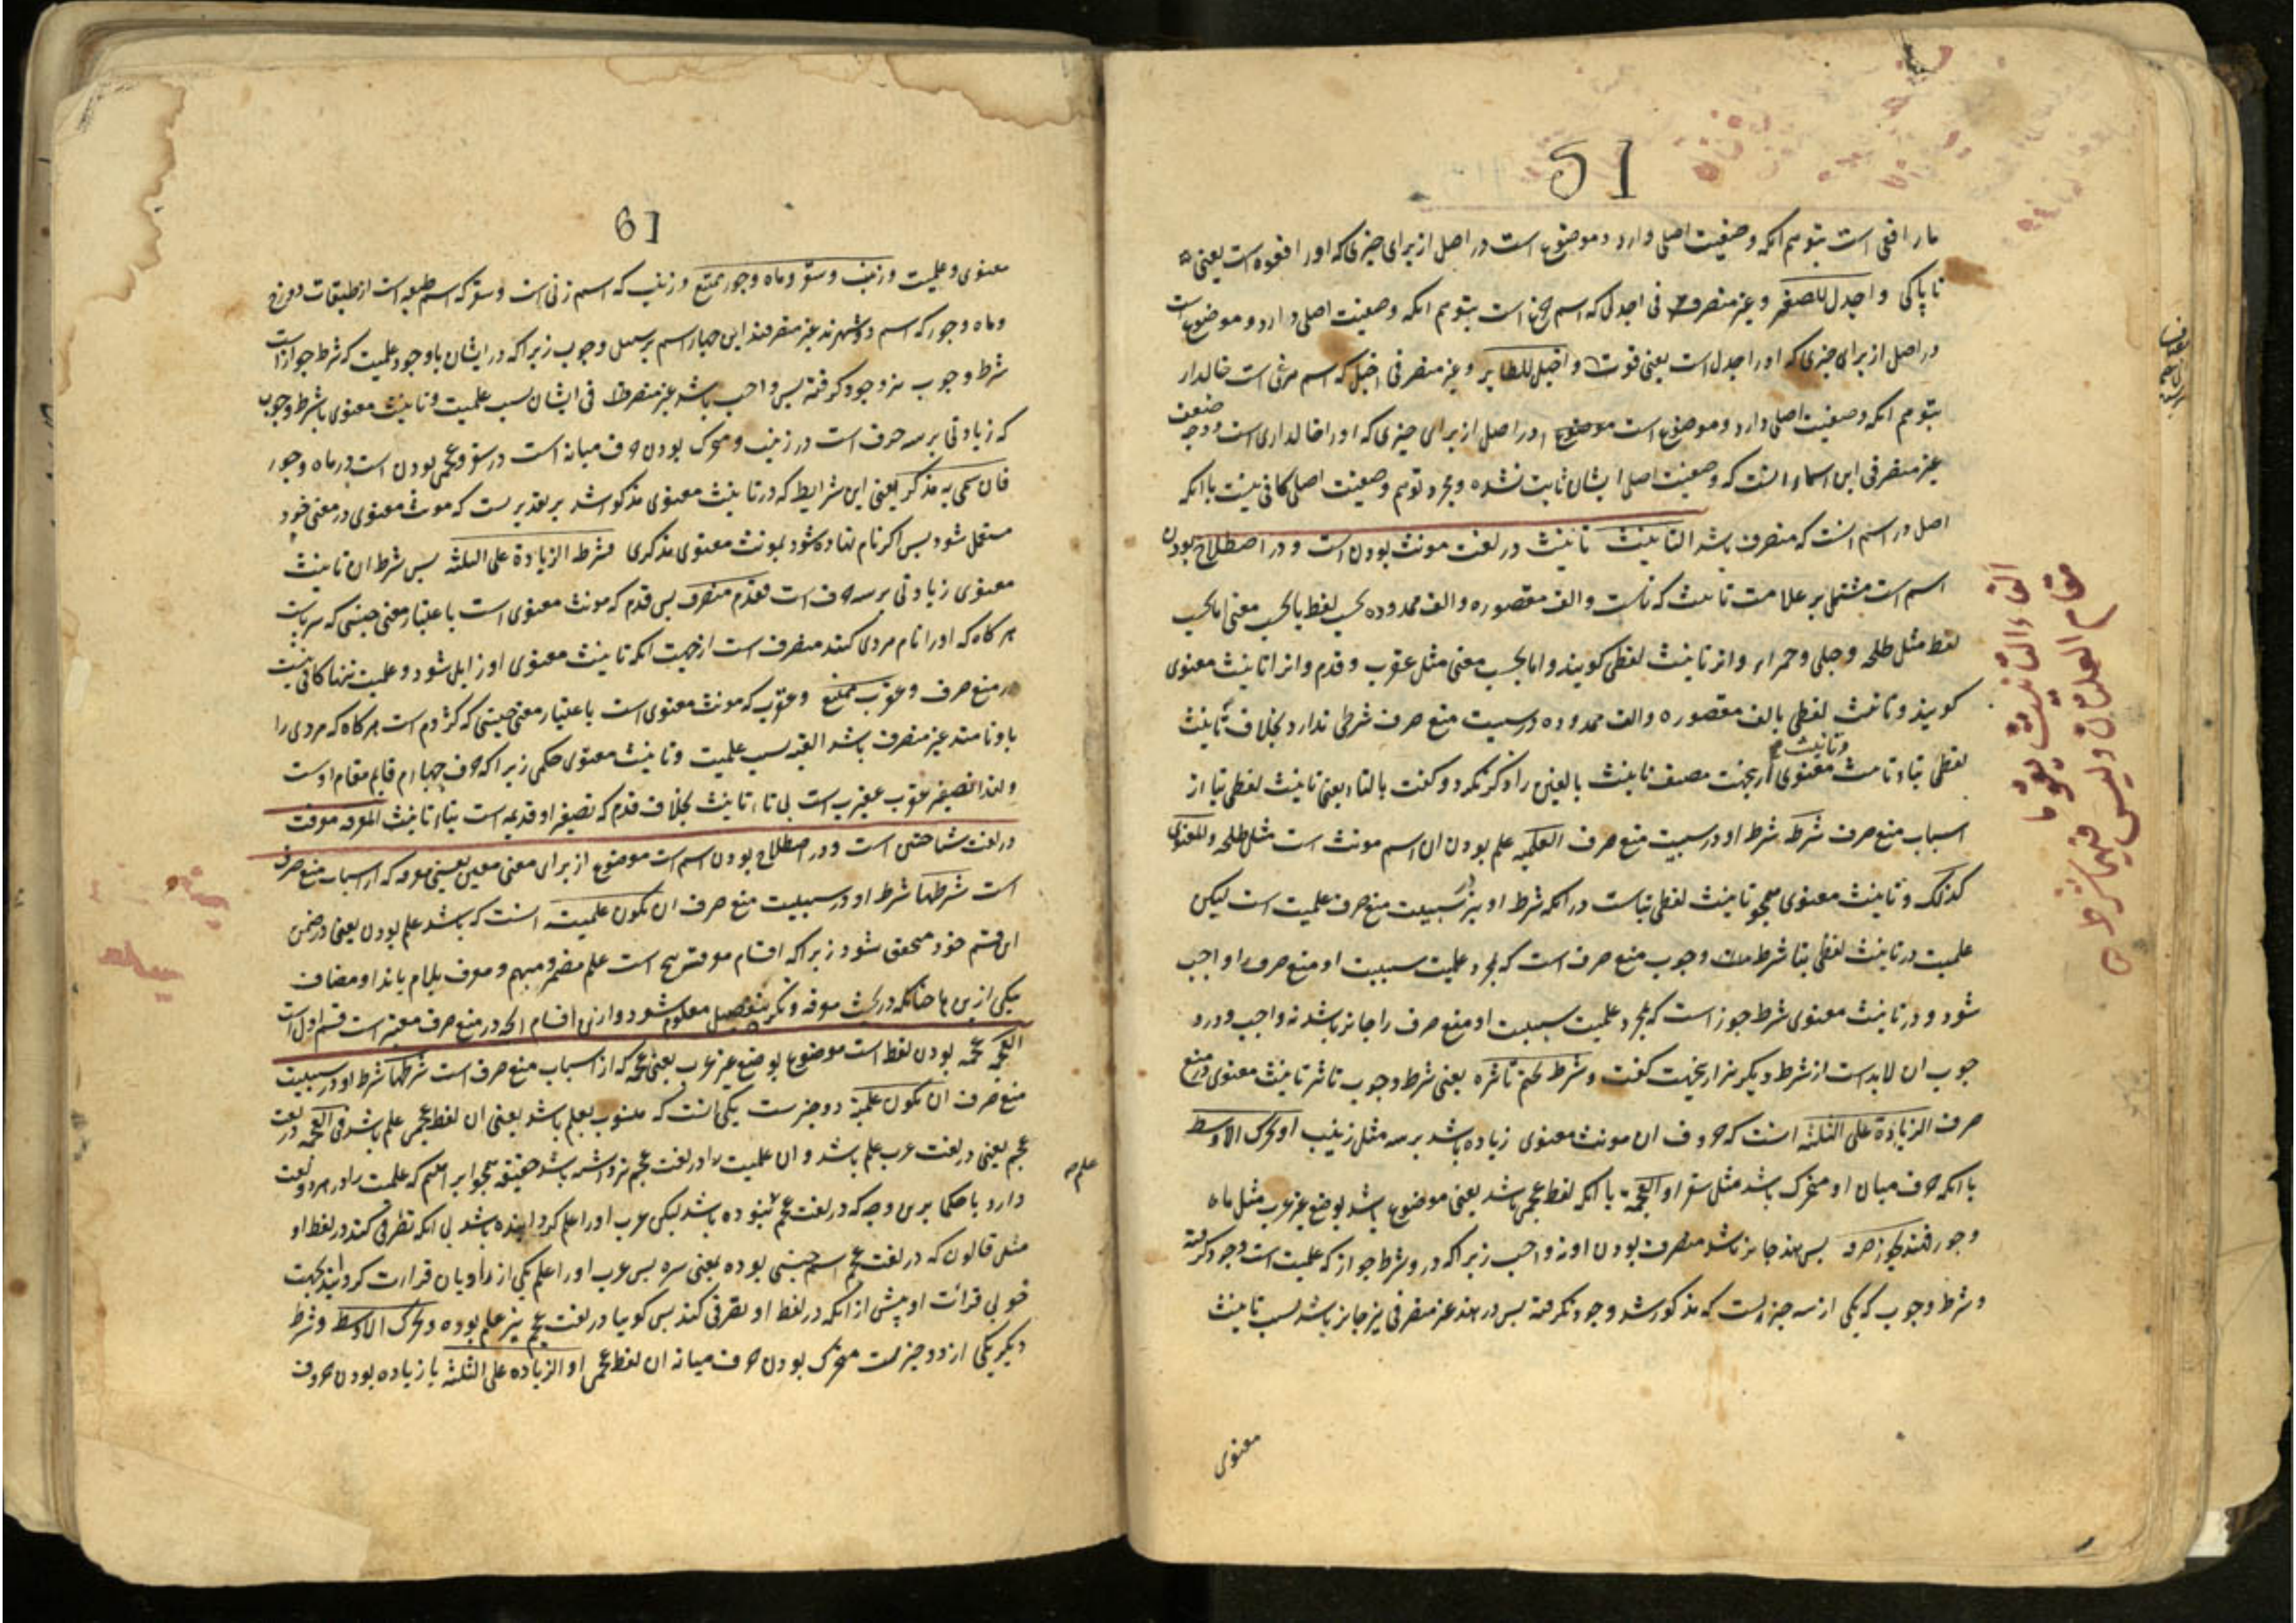 51
مار افعی است بتوهم انکه وصفیت اصلی دارد و موضوع است در اصل از برای چیزی که او را افعوه است یعنی
ناپاکی و اجدل للصقر و غیر منصرف فی اجدل که اسم چرغ است بتوهم انکه وصفیت اصلی دارد و موضوع است
در اصل از برای چیزی که او را جدل است یعنی قوت و اخیل للطایر و غیر منصرفی اخیل که اسم مرغی است خالدار
بتوهم انکه وصفیت اصلی دارد و موضوع است در اصل از برای چیزی که او را خالداری است و وجه ضعف
غیر منصرفی این اسماء انست که وصفیت اصلی ایشان ثابت نشده و مجرد توهم وصفیت اصلی کافی نیست با انکه
اصل در اسم انست که منصرف باشد التانیث تانیث در لغت مونث بودن است و در اصطلاح بودن
اسم است مشتمل بر علامت تانیث که تاست و الف مقصوره و الف ممدوده بحسب لفظ یا بحسب معنی اما بحسب
لفظ مثل طلحه و حبلی و حمراء و انرا تانیث لفظی کویند و اما بحسب معنی مثل عقرب و قدم و انرا تانیث معنوی
کویند و تانیث لفظی بالف مقصوره و الف ممدوده در سببیت منع صرف شرطی ندارد بخلاف تانیث
لفظی بتا و تانیث معنوی ازینجهت مصنف تانیث بالفین را ذکر نکرد و کفت بالتاء یعنی تانیث لفظی بتا از
اسباب منع صرف شرطه شرط او در سببیت منع صرف العلمیه علم بودن ان اسم مونث است مثل طلحه و المعنوی
کذلک و تانیث معنوی همچو تانیث لفظی بتاست در انکه شرط او نیز در سببیت منع صرف علمیت است لیکن
علمیت در تانیث لفظی بتا شرط وجوب منع صرف است که بمجرد علمیت سببیت او منع صرف را واجب
شود و در تانیث معنوی شرط جواز است که بمجرد علمیت سببیت او منع صرف را جایز باشد نه واجب و در و
جوب ان لابد است از شرط دیکر نیز ازینجهت کفت و شرط تحتم تاثیره یعنی شرط وجوب تاثیر تانیث معنوی در منع
صرف الزیادة علی الثلثه انست که حروف ان مونث معنوی زیاده باشد بر سه مثل زینب او تحرک الاوسط
یا انکه حرف میان او متحرک باشد مثل سقر او العجمة یا انکه لفظ عجمی باشد یعنی موضوع باشد بوضع غیر عرب مثل ماه
و جور فهند یجوز صرفه پس هند جایز باشد منصرف بودن او نه واجب زیرا که در و شرط جواز که علمیت است وجود کرفته
و شرط وجوب که یکی از سه چیز است که مذکور شد وجود نکرفته پس در هند غیر منصرفی نیز جایز باشد بسبب تانیث
معنوی
الف التانیث یقوما
مقام العلتان ولیس فیهما شرط
61
معنوی و علمیت و زینب و سقر و ماه و جور ممتنع و زینب که اسم زنی است و سقر که اسم طبقه است از طبقات دوزخ
و ماه و جور که اسم دو شهرند غیر منصرفند این چهار اسم بر سبیل وجوب زیرا که در ایشان با وجود علمیت که شرط جواز است
شرط وجوب نیز وجود کرفته پس واجب باشد غیر منصرفی ایشان بسبب علمیت و تانیث معنوی با شرط وجوب
که زیادتی بر سه حرف است در زینب و متحرک بودن حرف میانه است در سقر و عجمی بودن است در ماه و جور
فان سمی به مذکر یعنی این شرایط که در تانیث معنوی مذکور شد بر تقدیریست که مونث معنوی در معنی خود
مستعمل شود پس اکر نام نهاده شود بمونث معنوی مذکری فشرطه الزیادة علی الثلثه پس شرط ان تانیث
معنوی زیادتی بر سه حرف است فقدم منصرف پس قدم که مونث معنوی است باعتبار معنی جنسی که سر پاست
هر کاه که او را نام مردی کنند منصرف است از جهت انکه تانیث معنوی او زایل شود و علمیت تنها کافی نیست
در منع صرف و عقرب ممتنع و عقرب که مونث معنوی است باعتبار معنی جنسی که کژدم است هر کاه که مردی را
باو نامند غیر منصرف باشد البته بسبب علمیت و تانیث معنوی حکمی زیرا که حرف چهارم قایم مقام اوست
و لهذا تصغیر عقرب عقیرب است بی تاء تانیث بخلاف قدم که تصغیر او قدیمه است بتاء تانیث المعرفه معرفت
در لغت شناختن است و در اصطلاح بودن اسم است موضوع از برای معنی معین یعنی معرفه که از اسباب منع صرف
است شرطها شرط او در سببیت منع صرف ان تکون علمیته انست که باشد علم بودن یعنی در ضمن
این قسم خود متحقق شود زیرا که اقسام معرفه پنج است علم مضمر و مبهم و معرف بلام یا ندا و مضاف
بیکی از ین ها چنانکه در بحث معرفه و نکره بتفصیل معلوم شود و از ین اقسام انچه در منع صرف معتبر است قسم اول است
العجمه عجمه بودن لفظ است موضوع بوضع غیر عرب یعنی عجمه که از اسباب منع صرف است شرطها شرط او در سببیت
منع صرف ان تکون علمیة دو چیز ست یکی انست که منسوب بعلم باشد یعنی ان لفظ عجمی علم باشد فی العجمه در لغت
عجم یعنی در لغت عرب علم باشد و ان علمیت را در لغت عجم نیز داشته باشد حقیقه همچو ابراهیم که علمیت را در هر دو لغت
علم
دارد یا حکما برین وجه که در لغت عجم علم نبوده باشد لیکن عرب او را علم کردانیده باشد بی انکه تصرفی کند در لفظ او
مثل قالون که در لغت عجم اسم جنسی بوده بمعنی سره پس عرب او را علم یکی از راویان قرارت کردانید بجهت
خوبی قرائت او پیش از انکه در لفظ او تصرفی کند پس کوییا در لغت عجم نیز علم بوده و تحرک الاوسط و شرط
دیکر یکی از دو چیز ست متحرک بودن حرف میانه ان لفظ عجمی او الزیاده علی الثلثه یا زیاده بودن حروف